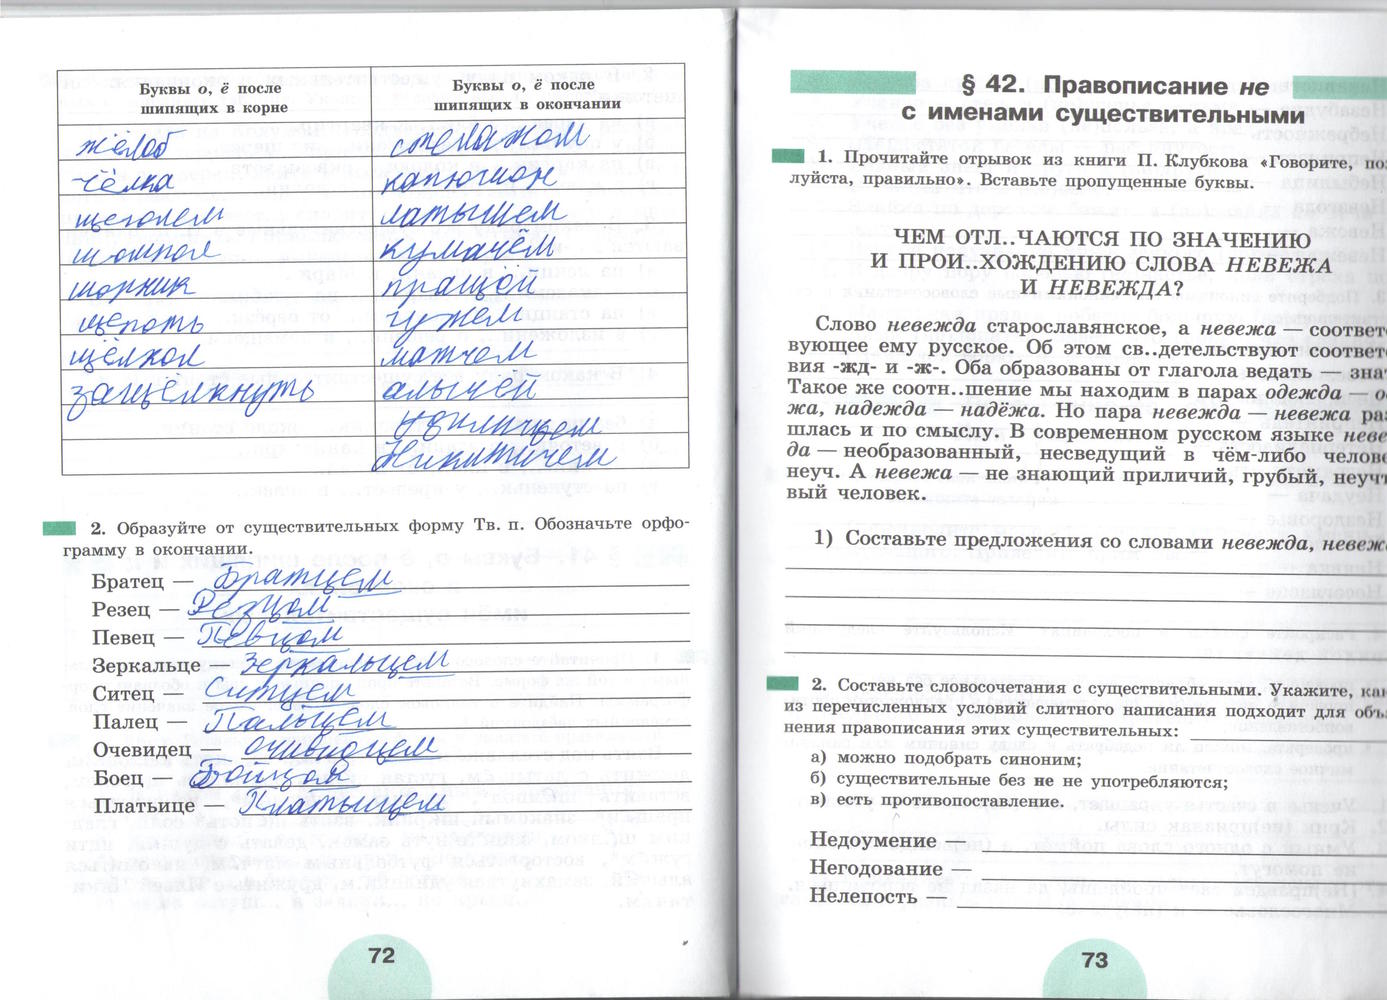 Буквы о, ё после шипящих в корне
Буквы о, ё после шипящих в окончании
жёлоб стеллажом
чёлка капюшон
щеголем латышем
шомпол кумачём
шорник пращой
щепоть гужем
щёлкол матчем
защёлкнуть алычей
Никитичем
2. Образуйте от существительных форму Тв. п. Обозначьте орфо-
грамму в окончании.
Братец — Братцем
Резец — Резцом
Певец — Певцом
Зеркальце — Зеркальцем
Ситец — Ситцем
Палец — Пальцем
Очевидец — очевидцем
Боец — Бойцом
Платьице — Платьицем
72
§ 42. Правописание не
с именами существительными
1. Прочитайте отрывок из книги П. Клубкова «Говорите, по
луйста, правильно». Вставьте пропущенные буквы.
ЧЕМ ОТЛ..ЧАЮТСЯ ПО ЗНАЧЕНИЮ
И ПРОИ..ХОЖДЕНИЮ СЛОВА НЕВЕЖА
И НЕВЕЖДА?
Слово невежда старославянское, а невежа — соответ
вующее ему русское. Об этом св..детельствуют соответ
вия -жд- и -ж-. Оба образованы от глагола ведать — зна
Такое же соотн..шение мы находим в парах одежда — о
жа, надежда — надёжа. Но пара невежда — невежа ра
шлась и по смыслу. В современном русском языке неве
да — необразованный, несведущий в чём-либо челов
неуч. А невежа — не знающий приличий, грубый, неучт
вый человек.
1) Составьте предложения со словами невежда, невеж
2. Составьте словосочетания с существительными. Укажите, как
из перечисленных условий слитного написания подходит для объ
нения правописания этих существительных:
а) можно подобрать синоним;
б) существительные без не не употребляются;
в) есть противопоставление.
Недоумение —
Негодование —
Нелепость —
73